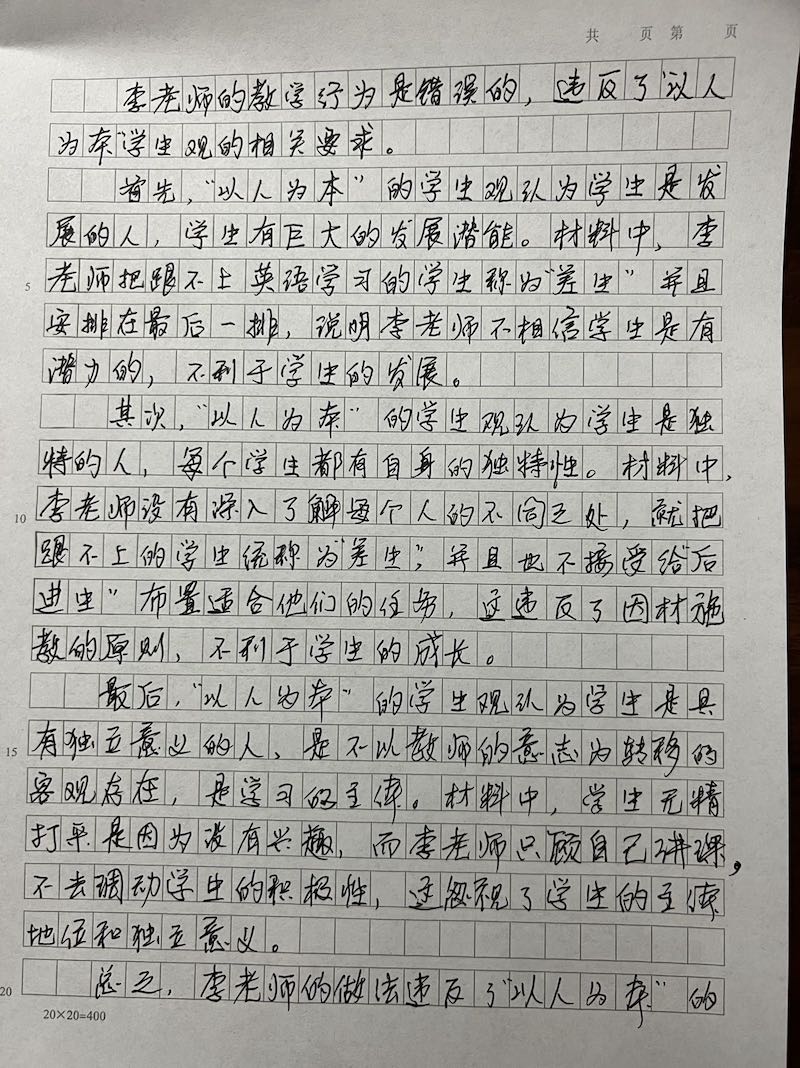 共 页 第 页
李老师的教学行为是错误的，违反了“以人
为本”学生观的相关要求。
首先，“以人为本”的学生观认为学生是发
展的人，学生有巨大的发展潜能。材料中，李
5 老师把跟不上英语学习的学生称为“差生”并且
安排在最后一排，说明李老师不相信学生是有
潜力的，不利于学生的发展。
其次，“以人为本”的学生观认为学生是独
特的人，每个学生都有自身的独特性。材料中，
10 李老师没有深入了解每个人的不同之处，就把
跟不上的学生统称为“差生”，并且也不接受给“后
进生”布置适合他们的任务，这违反了因材施
教的原则，不利于学生的成长。
最后，“以人为本”的学生观认为学生是具
15 有独立意义的人，是不以教师的意志为转移的
客观存在，是学习的主体。材料中，学生无精
打采是因为没有兴趣，而李老师只顾自己讲课，
不去调动学生的积极性，这忽视了学生的主体
地位和独立意义。
20 总之，李老师的做法违反了“以人为本”的
20×20=400